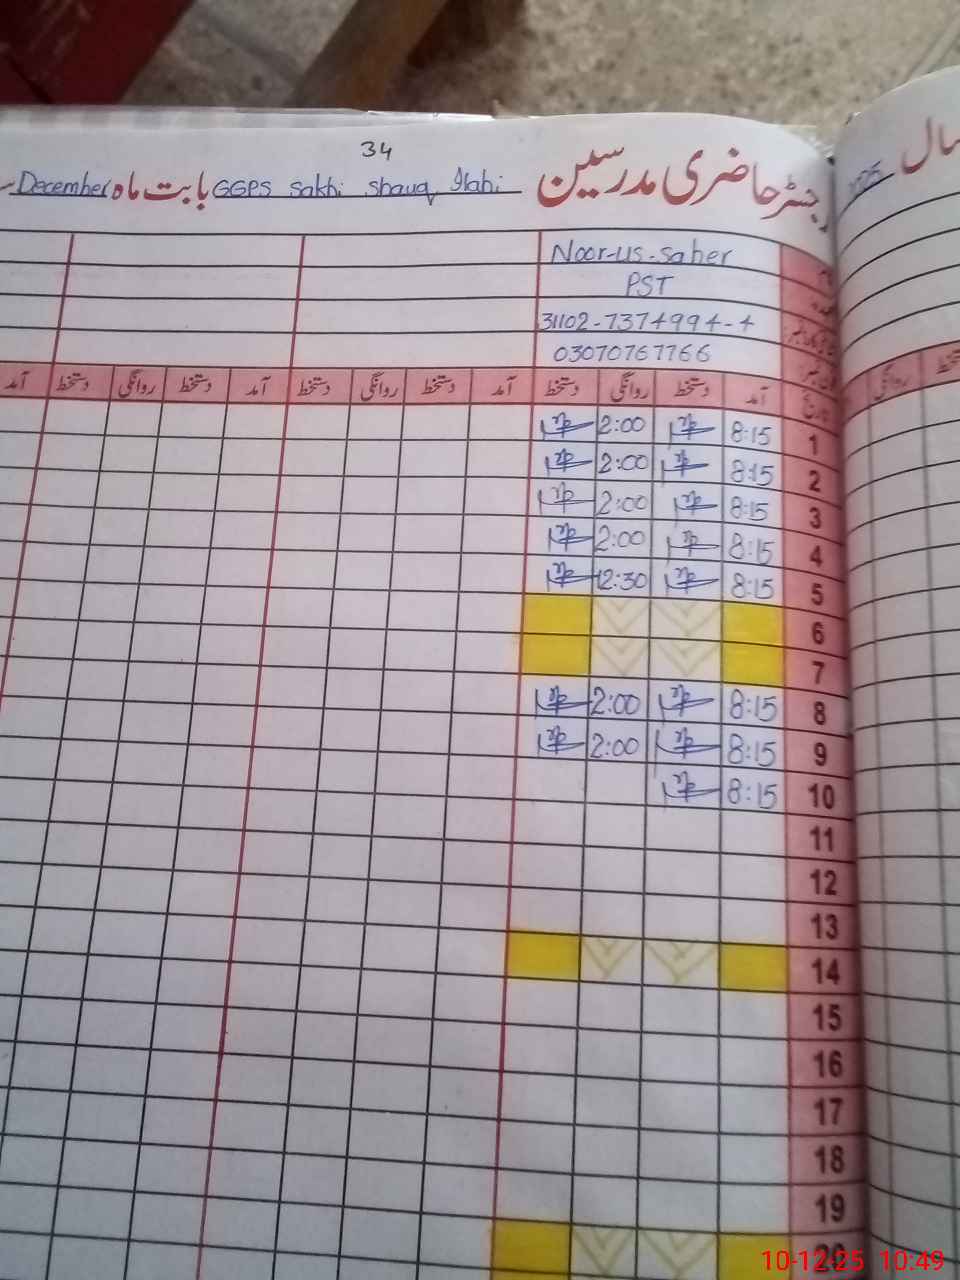 34
رجسٹر حاضری مدرسین GGPS Sakhi shauq Ilahi بابت ماہ December
سال 2025
Noor-us-saher
PST
31102-7374994-4
03070767766
تاریخ آمد دستخط روانگی دستخط آمد دستخط روانگی دستخط آمد دستخط روانگی دستخط آمد
روانگی
1 8:15 2:00
2 8:15 2:00
3 8:15 2:00
4 8:15 2:00
5 8:15 12:30
6
7
8 8:15 2:00
9 8:15 2:00
10 8:15
11
12
13
14
15
16
17
18
19
20
10-12-25 10:49